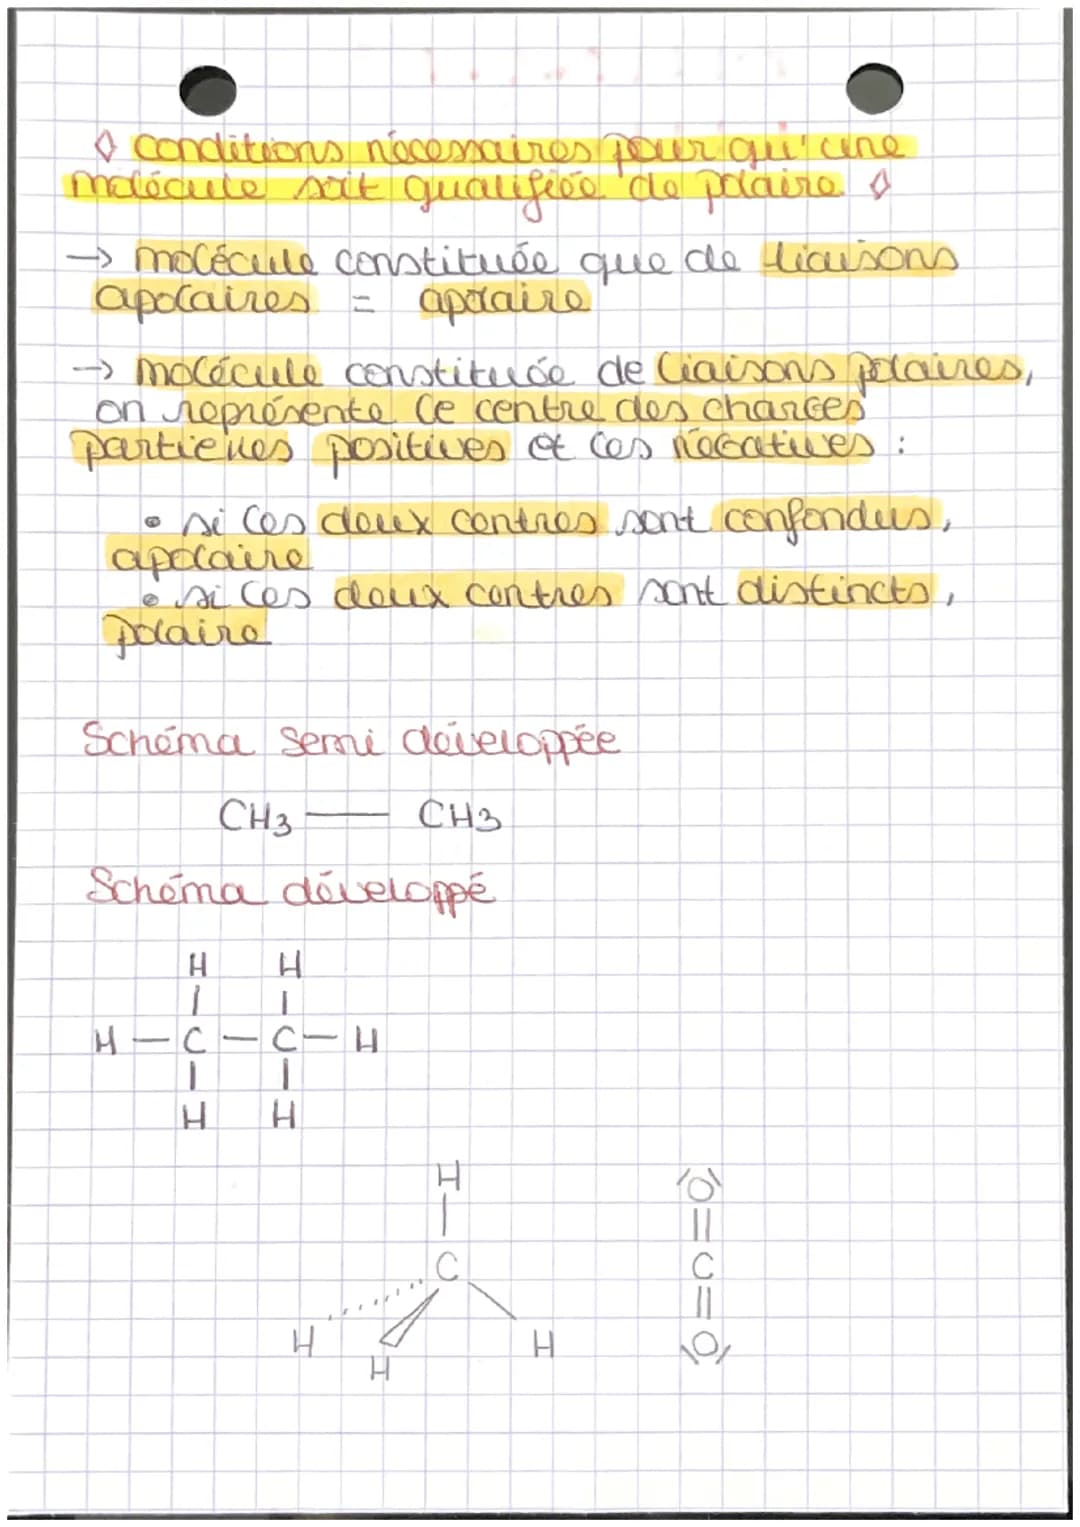 ◊ conditions nécessaires pour qu'une
molécule soit qualifiée de polaire ◊
→ molécule constituée que de liaisons
apolaires = apolaire
→ molécule constituée de liaisons polaires,
on représente le centre des charges
partielles positives et les négatives :
• si les deux centres sont confondus,
apolaire
• si les deux centres sont distincts,
polaire
Schéma semi développée
CH3 — CH3
Schéma développé
H H
H — C — C — H
H H
H
C
H H H
O
||
C
||
O